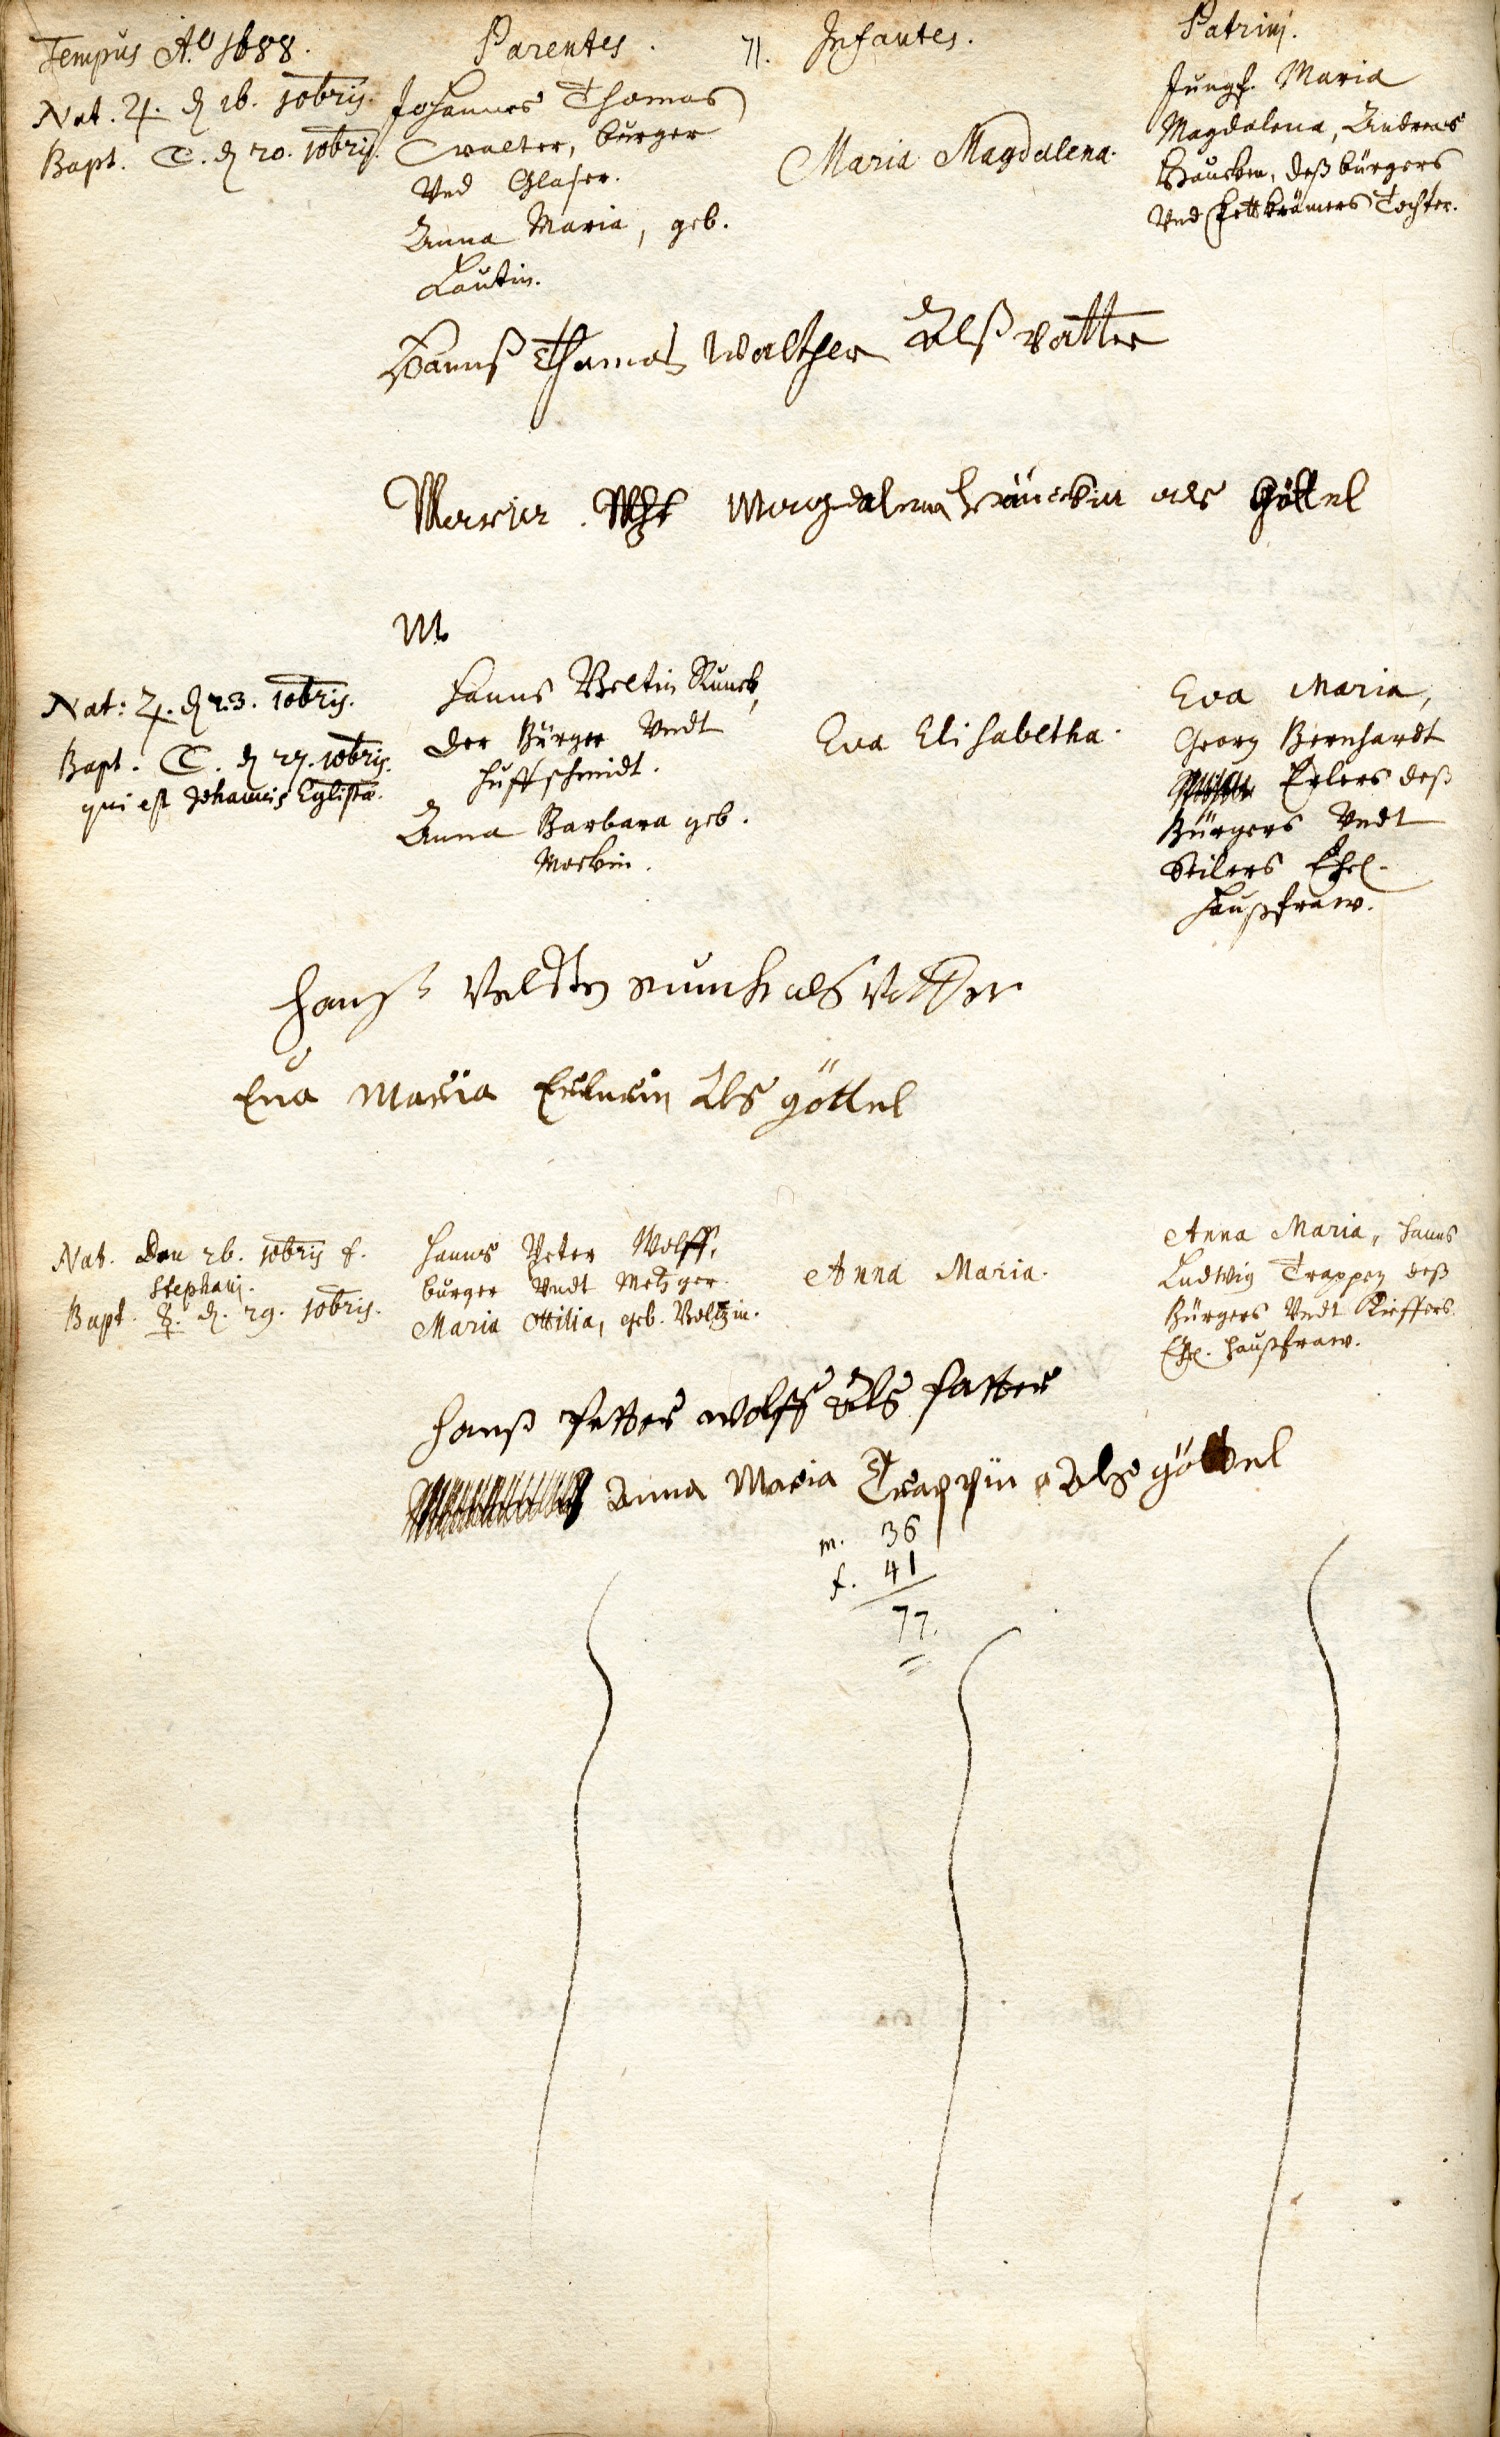 Tempus Aº 1688.
Parentes.
71.
Infantes.
Patrinj.
Nat. ♃. d 16. 10bris.
Bapt. ☾. d 20. 10bris.
Johannes Thomas
Walter, burger
Vnd Glaser.
Anna Maria, geb.
Lautin.
Maria Magdalena.
Jungf. Maria
Magdalena, Andreas
Haucken, deß bürgers
Vnd Fettkrämers Tochter.
Hannß Thomas Walther Alß vatter
Maria Magdalena Hauckin als Göttel
M
Nat: ♃. d 23. 10bris.
Bapt. ☾. d 27. 10bris.
qui est Johannis Eglistæ.
Hanns Veltin Runck,
der Bürger Vndt
Huffschmidt.
Anna Barbara geb.
Mockin.
Eva Elisabetha.
Eva Maria,
Georg Bernhardt
Erlers deß
Bürgers Vndt
Seilers Ehel.
Haußfraw.
Hanß Veldten Runck als Vatter
Eva Maria Erlerin Als göttel
Nat. Den 26. 10bris f.
Stephanj.
Bapt. ☿. d. 29. 10bris.
Hanns Peter Wolff,
burger Vndt Metzger.
Maria Ottilia, geb. Voltzin.
Anna Maria.
Anna Maria, Hanns
Ludwig Trappen deß
Bürgers Vndt Kieffers
Ehl. Haußfraw.
Hanß Petter Wolff Als Fatter
Anna Maria Trappin Als göttel
m. 36
f. 41
77.